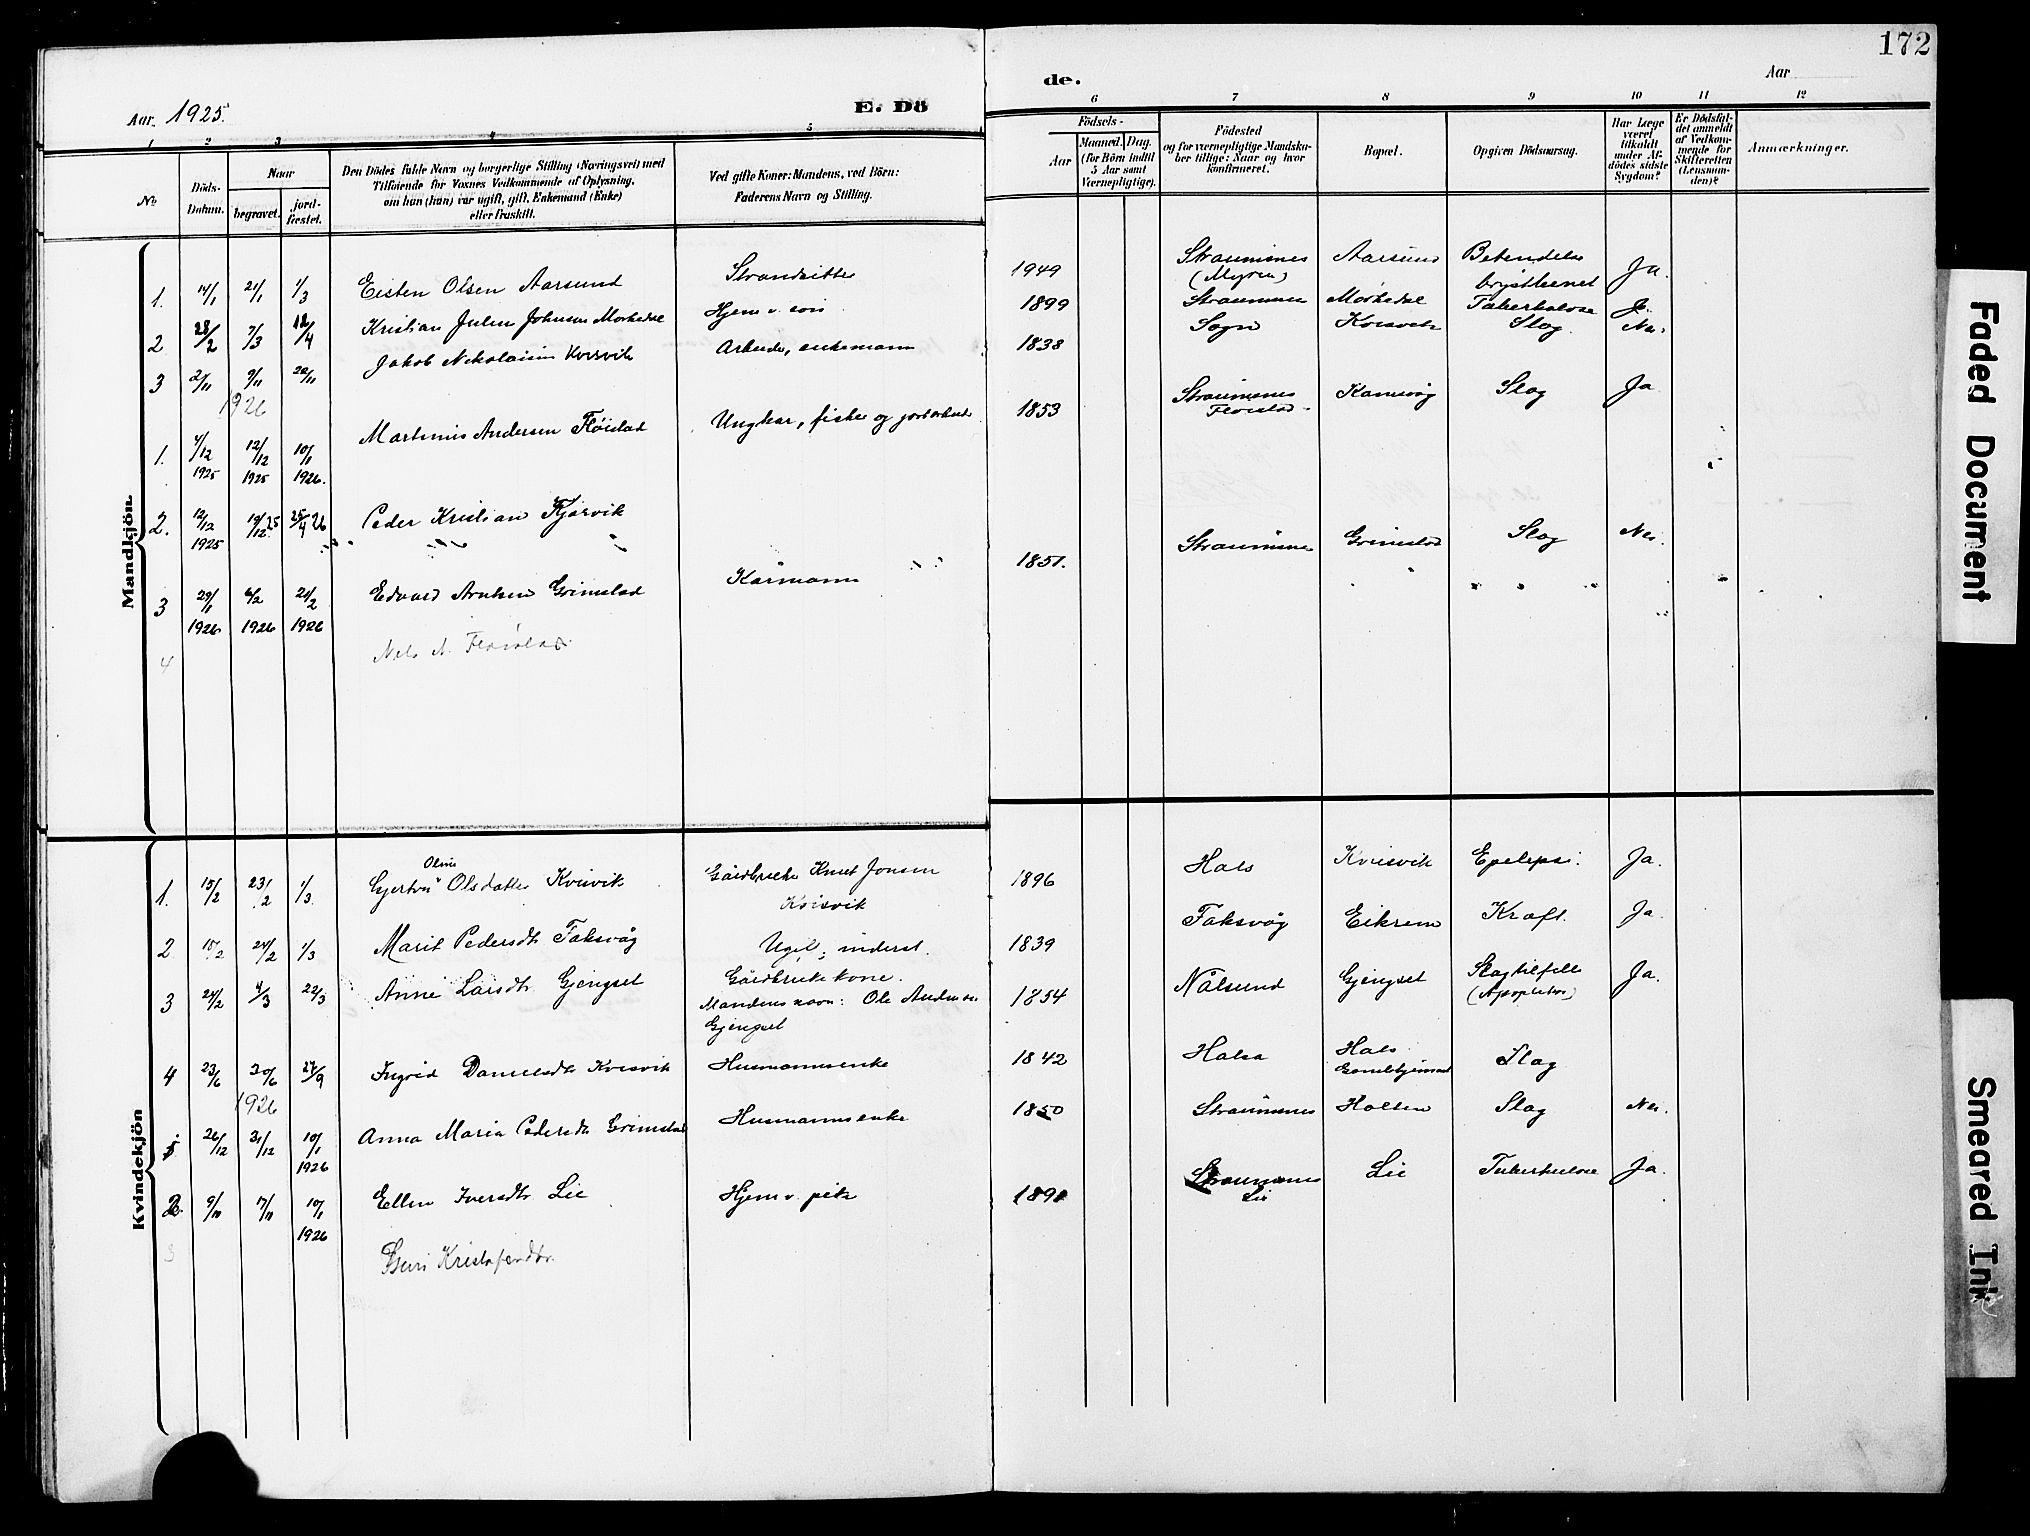 172
Aar 1925.
E. Dö
de.
Aar
1
2
3
4
5
6
7
8
9
10
11
12
No
Döds-
Datum.
Naar
begravet.
jord-
fæstet.
Den Dödes fulde Navn og borgerlige Stilling (Næringsvei) med
Tilföiende for Voxnes Vedkommende af Oplysning,
om han (hun) var ugift, gift, Enkemand (Enke)
eller fraskilt.
Ved gifte Koner: Mandens, ved Börn:
Faderens Navn og Stilling.
Födsels-
Aar
Maaned.
Dag.
(for Börn indtil
5 Aar samt
Værnepligtige).
Födested
og for værnepligtige Mandska-
ber tillige: Naar og hvor
konfirmeret.
Bopæl.
Opgiven Dödsaarsag.
Har Læge
været
tilkaldt
under Af-
dödes sidste
Sygdom?
Er Dödsfal-
det anmeldt
af Vedkom-
mende for
Skifteretten
(Lensman-
den)?
Anmærkninger.
Mandkjön
1. 14/1 21/1 1/3 Eisten Olsen Aarsund Strandsitter 1949 Straumsnes (Myren) Aarsund Betendelse brysthinnet Ja.
2 28/2 7/3 12/4 Kristian Julius Johnsen Morkedal Hjem v. son 1899 Straumsnes Morkedal Tuberkulose Ja.
3 2/11 9/11 22/11 Jakob Nikolaisen Korsvik Arbeider, enkemann 1838 Sogn Korsvik Slag. Nei.
1926
1. 4/12 1925 12/12 1925 10/1 1926. Martinus Andersen Flöistad Ungkar, fisker og jordarbeider 1853 Straumsnes Floistad Kanesvåg Slag Ja
2. 12/12 1925 19/12 25 25/4 26 Peder Kristian Kjorvik
3 29/1 1926 6/2 1926 21/2 1926 Edvard Arntsen Grimstad Kårmann 1851. Straumsnes Grimstad Slag Nei.
4 Nels A. Floistad
Kvindekjön
1. 15/2 23/2 1/3. Gjertru Oline Olsdatter Kvisvik Gårdbruker Knut Jonsen Kvisvik 1896 Hals Kvisvik Epelepsi. Ja.
2 15/2 24/2 1/3 Marit Pedersdtr Taksvåg Ugift, inderst. 1839 Taksvåg Eikrem Kræft. Ja.
3 24/2 4/3 22/3 Anne Larsdtr Gjengset Gårdbruker kone. Mandens navn: Ole Andersen Gjengset 1854 Nålsund Gjengset Slagtilfell (Apopleksi) Ja.
4 23/6 30/6 27/9 Ingrid Danielsdtr Kvisvik Husmannsenke 1842 Halsa Hals Gamlehjemmet Slag
1926
1 26/12 31/12 10/1 1926 Anna Maria Pedersdtr Grimstad Husmannsenke 1850 Straumsnes Holten Slag Nei.
2. 9/11 17/11 10/1 1926 Ellen Iversdtr. Lie Hjem v. pike 1891 Straumsnes Lie Lie Tuberkulose Ja.
3 Guri Kristofersdtr.
Faded Document
Smeared Ink